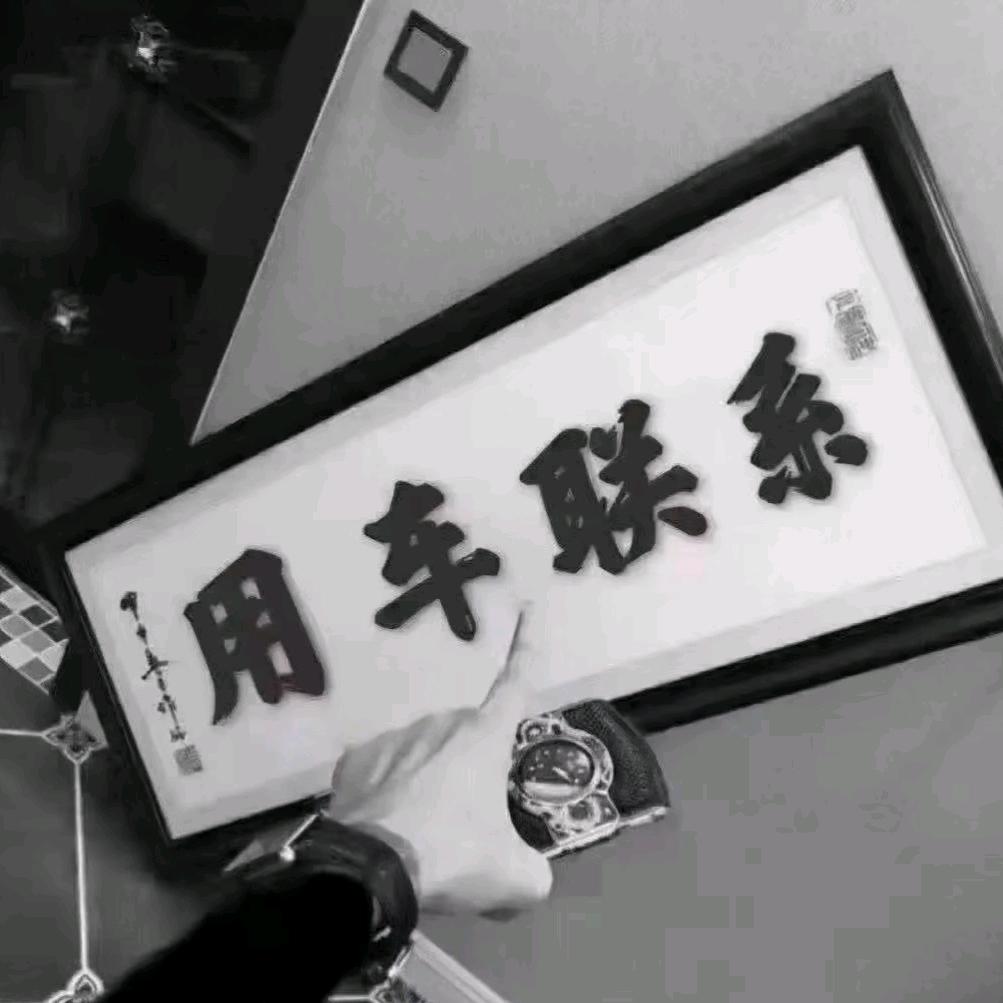 用车联系